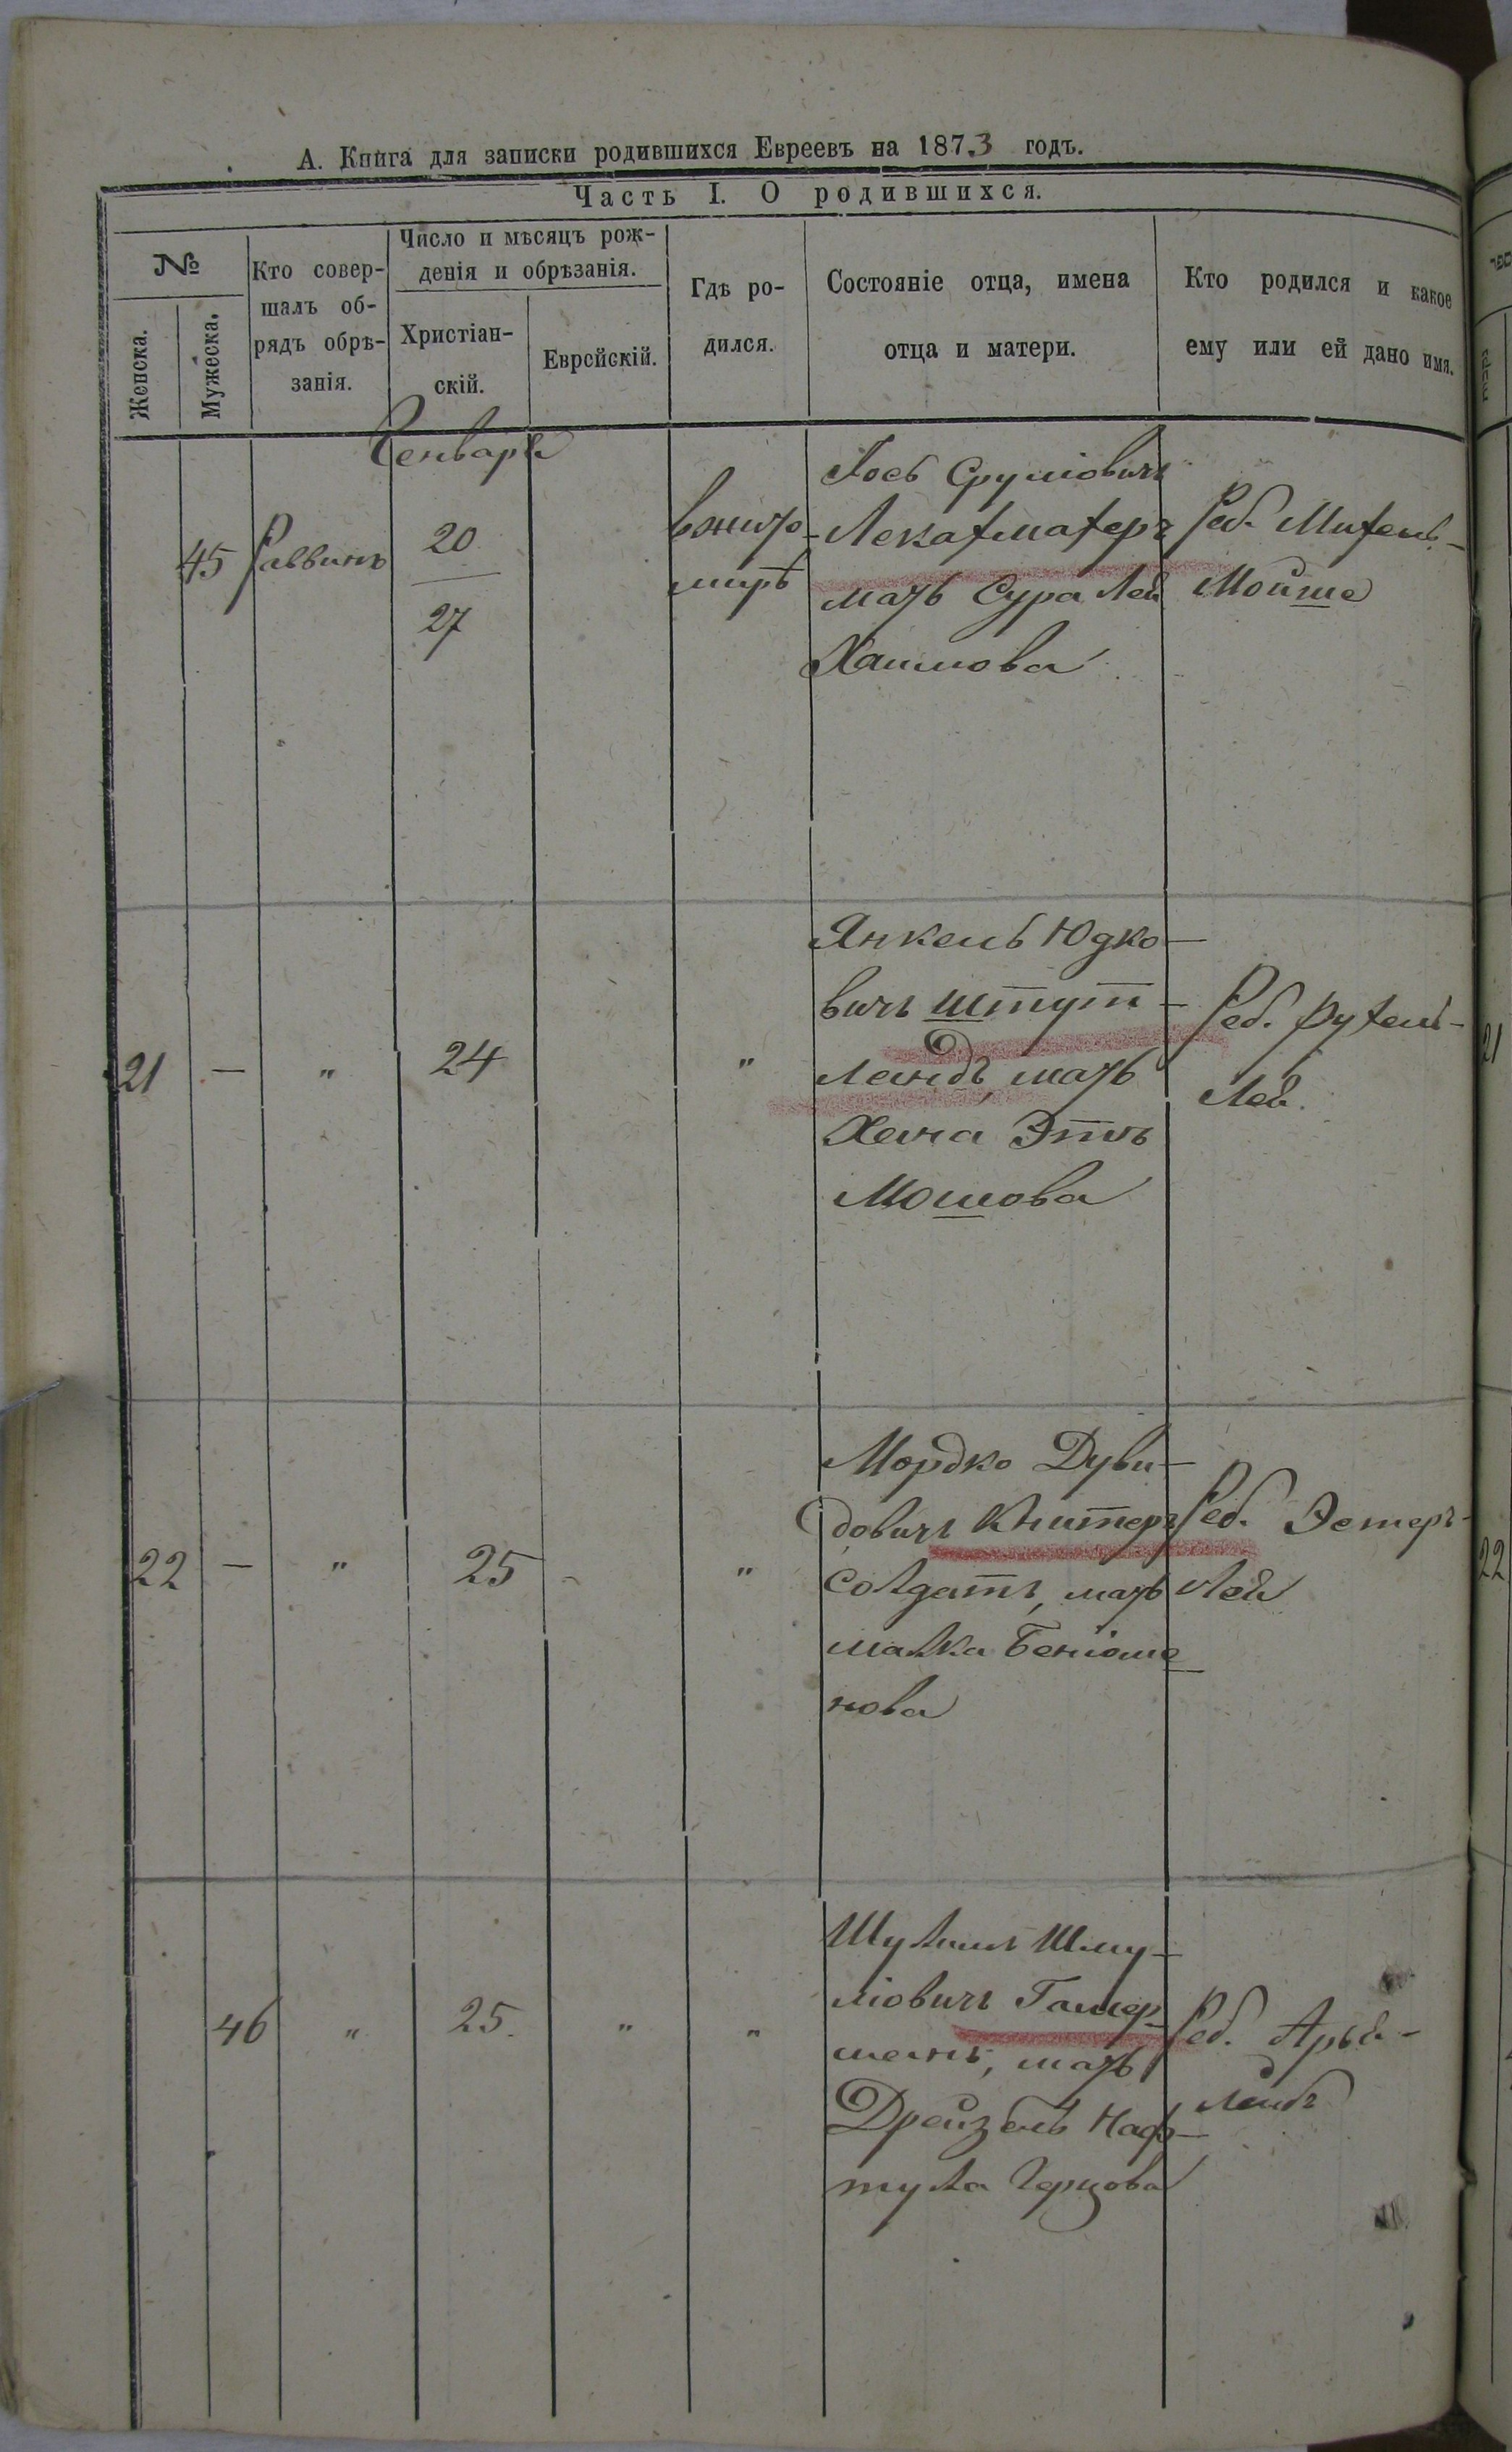 А. Книга для записки родившихся Евреевъ на 1873 годъ.
Часть I. О родившихся.
№
Женска.
Мужеска.
Кто совер-
шалъ об-
рядъ обрѣ-
занія.
Число и мѣсяцъ рож-
денія и обрѣзанія.
Христіан-
скій.
Еврейскій.
Гдѣ ро-
дился.
Состояніе отца, имена
отца и матери.
Кто родился и какое
ему или ей дано имя.
Генваря
45
Раввинъ
20
27
вжито-
мирѣ
Іось Сруліовичъ
мать Сура Лея
Хаимова
Реб.
Мойше
21
—
"
24
"
Янкель Юдко-
вичъ Штут-
ландъ, мать
Хана Этль
Мошова
Реб.
Лея.
22
—
"
25
"
Мордко Дуви-
довичъ Книтеръ
солдатъ, мать
малка Беніоме
нова
Реб. Эстеръ-
Лея
46
"
25.
"
"
Шулимъ Шму-
ліовичъ Гамер-
манъ, мать
Дрейзель Наф-
тула Герцова
Реб. Арья-
Лейбъ
21
22